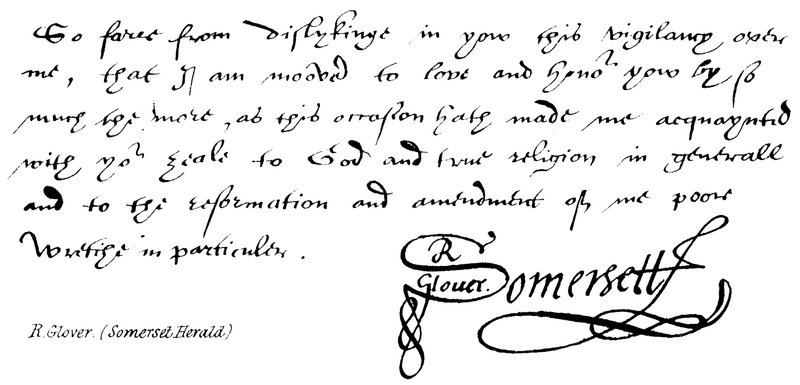 So farre from dislykinge in yow this vigilancy over
me, that I am mooved to love and honor yow by so
much the more, as this occasion hath made me acquaynted
with yor zeale to God and true religion in generall
and to the reformation and amendment of me poore
Wretche in particuler.
R
Glover. Somersett
R. Glover. (Somerset Herald)